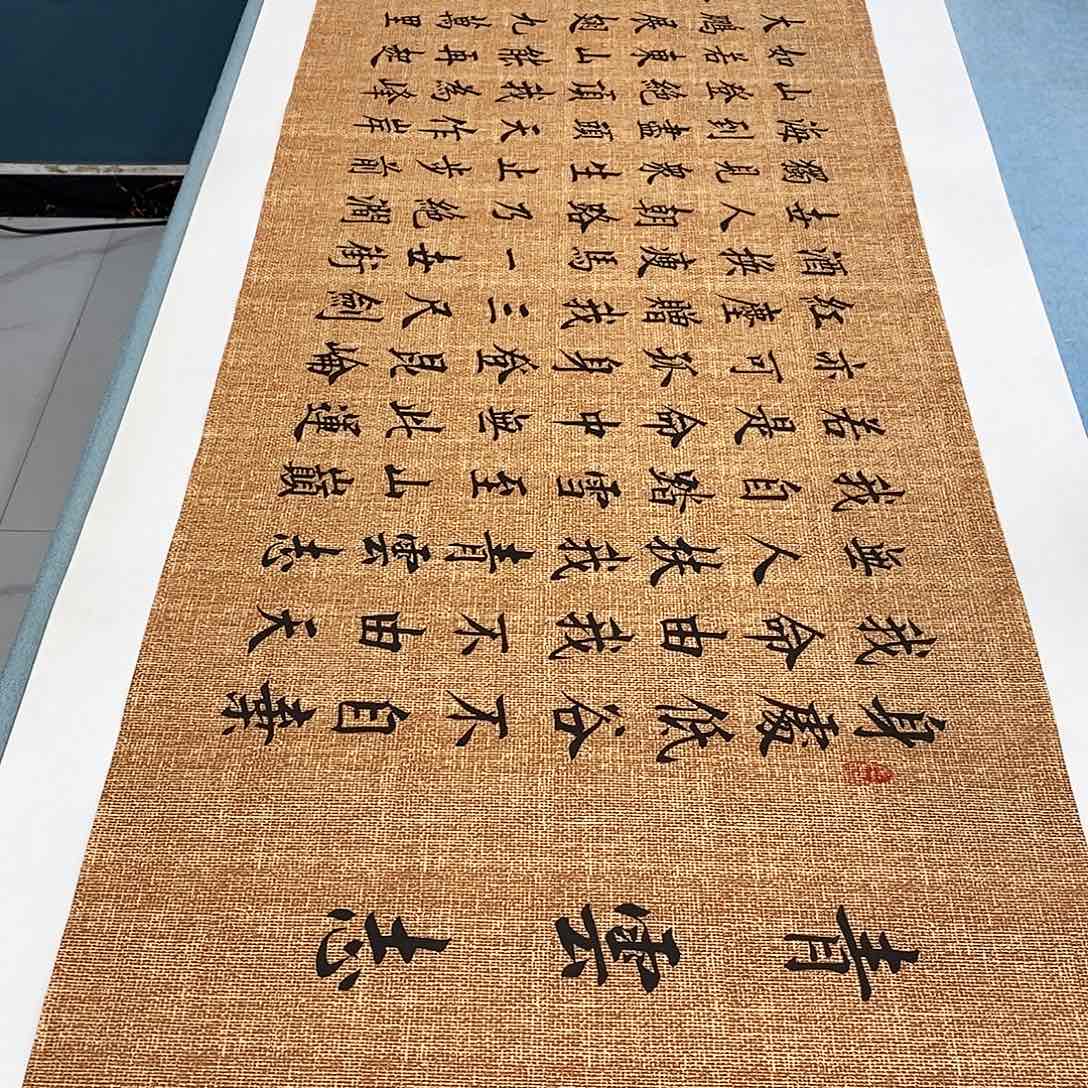 青雲志
身處低谷不自棄
我命由我不由天
無人扶我青雲志
我自踏雪至山巔
若是命中無此運
亦可孤身登昆崙
紅塵贈我三尺劍
酒換瘦馬一世街
世人朝路乃絕澗
獨見衆生止步前
海到盡頭天作岸
山登絕頂我為峰
如若東山能再起
大鵬展翅九萬里